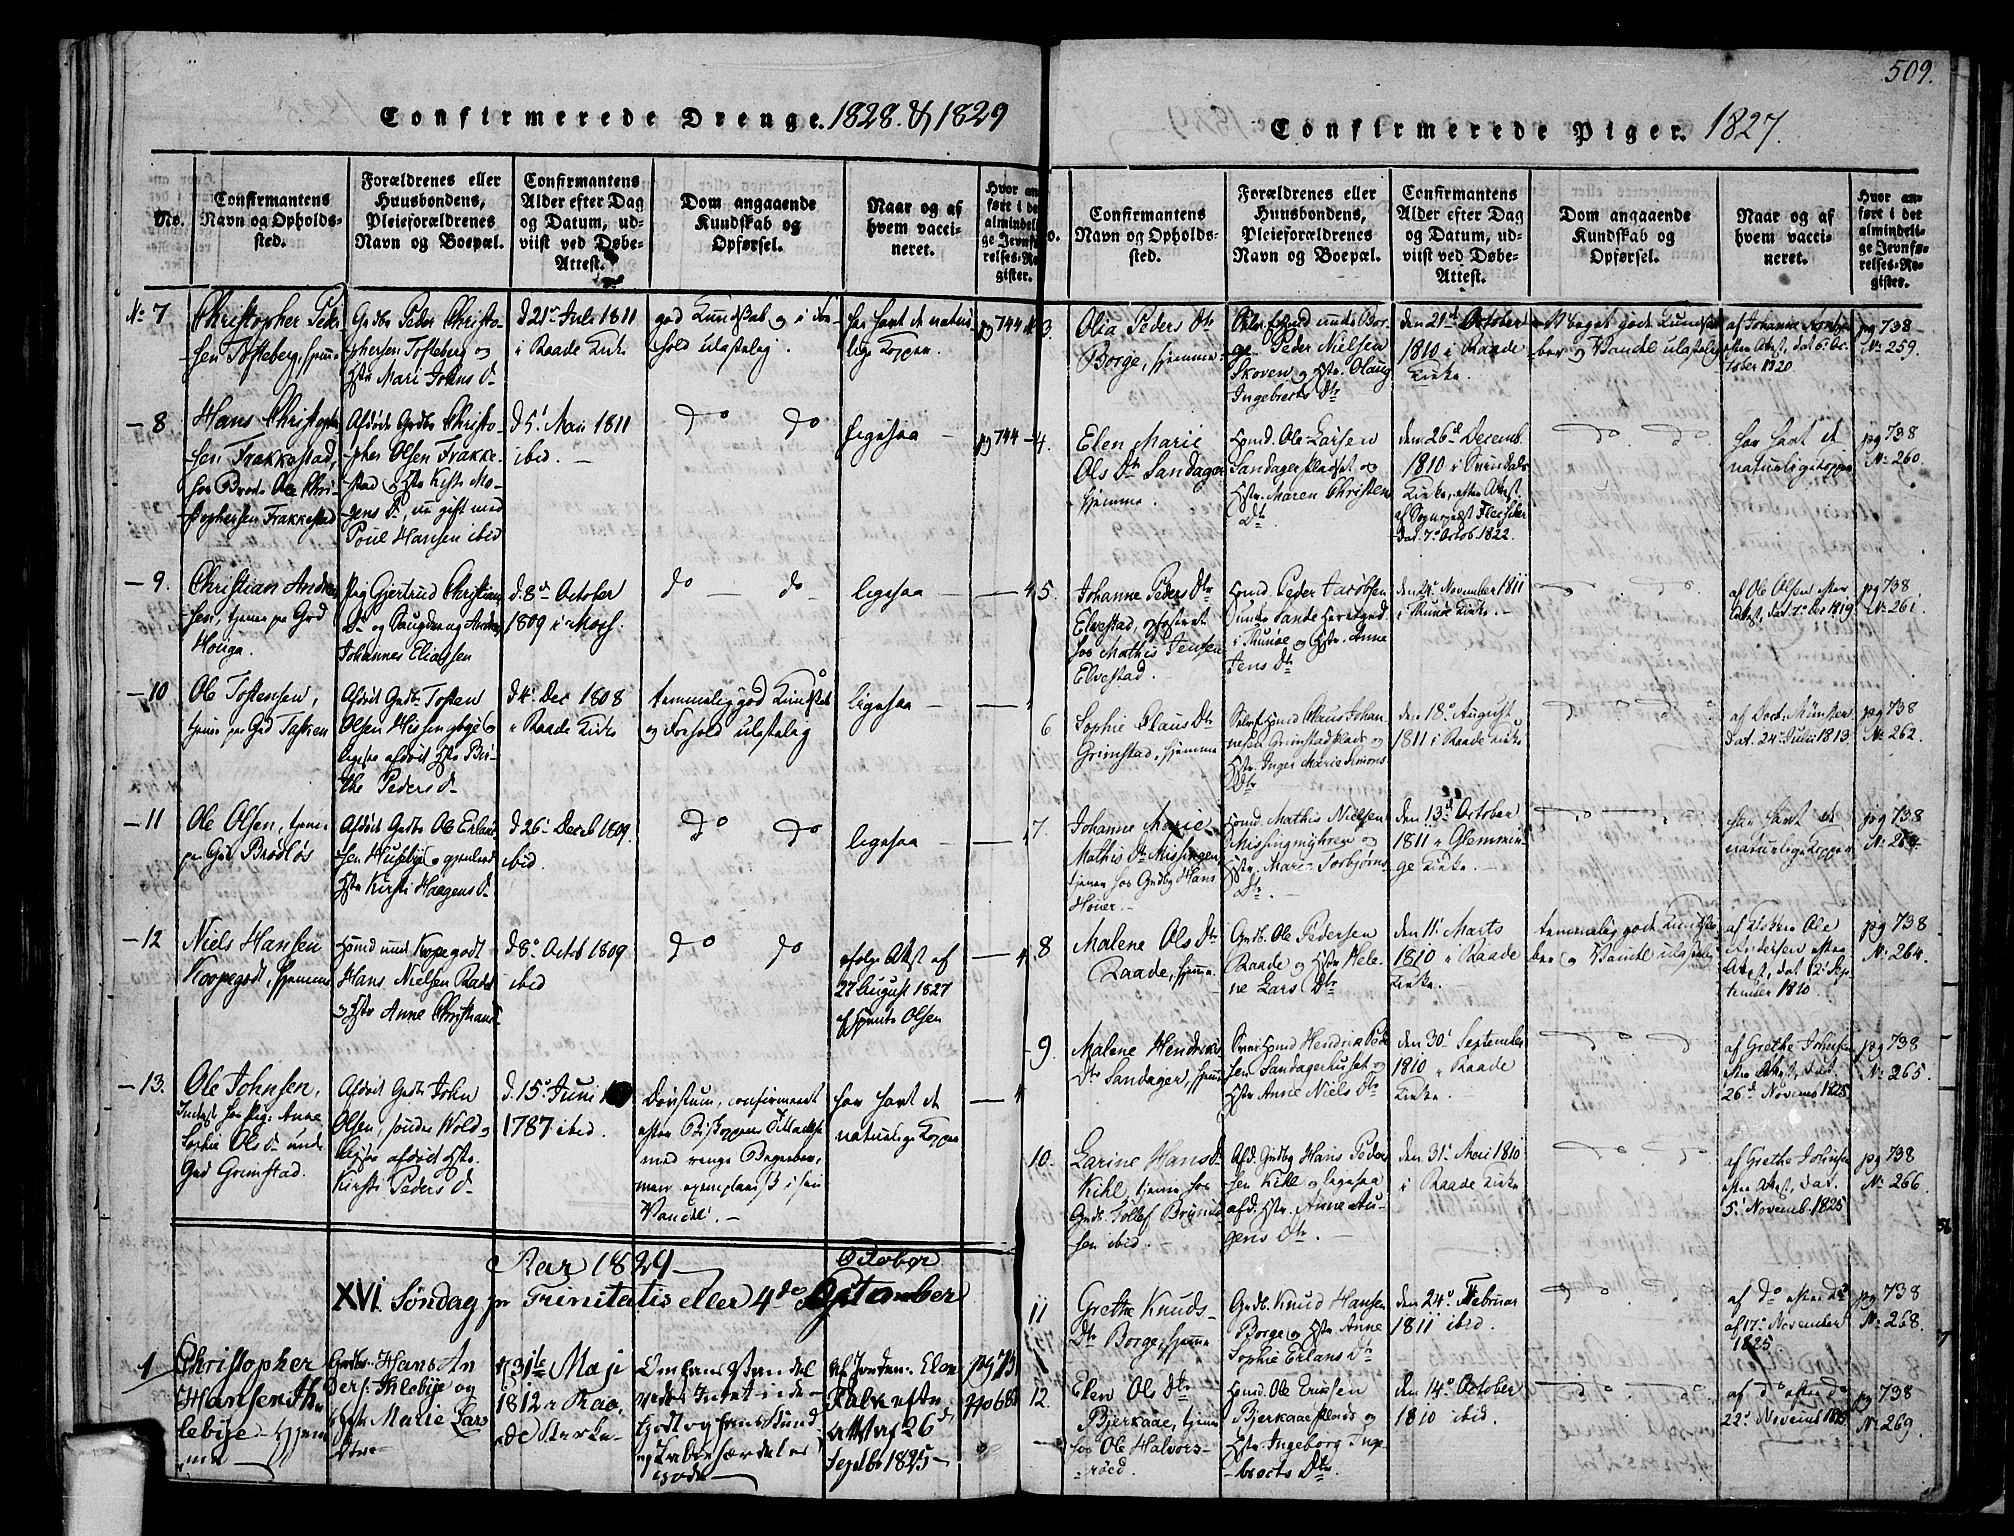 Confirmerede Drenge. 1828. & 1829
No.
Confirmantens
Navn og Opholds-
sted.
Forældrenes eller
Huusbondens,
Pleieforældrenes
Navn og Boepæl.
Confirmantens
Alder efter Dag
og Datum, ud-
viist ved Døbe-
Attest.
Dom angaaende
Kundskab og
Opførsel.
Naar og af
hvem vacci-
neret.
Hvor an-
ført i det
almindeli-
ge Jevnfø-
relses-Re-
gister.
No 7
Christopher Peder
sen Tofteberg, hjemme
Gdbr Peder Christo-
phersen Tofteberg og
Hstr Mari Johns D
d 21 Juli 1811
i Raade Kirke
god Kundskab og i For-
hold ulastelig.
har havt de natur
lige Kopper.
pg 744
8
Hans Christoph
sen Frakkestad,
hos Brode Ole Chri-
stophersen Frakkestad
Afdøde Gdbr Christo-
pher Olsen Frakke-
stad og Hstr Mo-
gens D, nu gift med
Poul Hansen ibid
d 5 Mai 1811
ibid.
do do
ligesaa
pg 744
9.
Christian Andrea
sen, tjener pa Grd
Houga.
Pig Gjertrud Christian
D og Andrea
Johannes Eliassen
d. 8de October
1809 i Moss.
do do
ligesaa
10
Ole Tostensen,
tjener pa Grd
Afdød Gdbr Tosten
Olsen
ligesa afdød Hstr Bir-
the Peders D
d 4 Dec 1808
i Raade Kirke
temmelig god Kundskab
og Forhold ulastelig
ligesaa
11
Ole Olsen, tjener
pa Grd
Afdød Gdbr Ole Erland
sen Husebye og
Hstr Kirsti Haagens D
d 26 Decb 1809.
ibid.
do do
ligesaa
12
Niels Hansen
Koppegodt, hjemme
Hmd und Kopegodt
Hans Nielsen Raade
og Hstr Anne Christians
d 8 Octob 1809
ibid
do do
ifolge Attest af
27 August 1827
af Olsen
13.
Ole Johnsen,
hos Pig: Anne
Sophie Ols D unde
Grd Grimstad.
Afdød Gdbr John
Olsen, søndre Wold og
ligesa afdød Hstr.
Kirsti Peders D
d. 15 Juni
1787 ibid.
Døvstum, confirmeret
efter Biskoppens Tilladelse
med ringe Begreber,
men exemplarisk i sin
Vandel.
har havt de
naturlige Kopper
Aar 1829
October
XVI Søndag p Trinitatis eller 4de September
1
Christopher
Hansen Th
lebije hjem
me
Gdbr. Hans An
ders: Thlebije og
Hstr Marie Lars
Dtre
d 31te Maji
1812 i Raa
de Kirke
af Jordem. Elen
Falk efter
attest af 26
Septbr 1825
pg 75
No 68
509.
Confirmerede Piger. 1827.
Confirmantens
Navn og Opholds-
sted.
Forældrenes eller
Huusbondens,
Pleieforældrenes
Navn og Boepæl.
Confirmantens
Alder efter Dag
og Datum, ud-
viist ved Døbe-
Attest.
Dom angaaende
Kundskab og
Opførsel.
Naar og af
hvem vacci-
neret.
Hvor an-
ført i det
almindeli-
ge Jevnfø-
relses-Re-
gister.
3.
Olia Peders Dtr
Borge, hjemme
unde Bor-
ge Peder Nielsen
Skoven og Hstr. Olaug
Ingebrets Dtr
den 21de October
1810 i Raade
Kirke.
Meget gode Kundska-
ber og Vandel ulastelig
af Johanne
efter Attest, dat 6. Oc
tober 1820
pg 738
No 259.
4.
Elen Marie
Ols Dtr Sandager
hjemme.
Hmd. Ole Larsen
Sandagerpladset og
Hstr. Maren Christens
Dtr
den 26de Decemb.
1810 i Svindals
Kirke, efter Attest
af Sognepræst Fleischer
Dat. 7 Octob 1822.
do do
har havt de
naturlige Kopper
pg 738
No 260.
5.
Johanne Peders Dtr
Elvestad, opfostret
hos Mathis Jensen
Elvestad.
Hmd. Peder Jacobsen
unde Sande Herregaard
i Thunøe og Hstr. Anne
Jens Dtr
den 24 November 1811
i Thunøe Kirke.
do do
af Ole Olsen efter
Attest, dat. 1819
pg 738
No 261.
6
Sophie Claus Dtr
Grimstad, hjemme
Hmd Claus Johan
nesen Grimstadplads og
Hstr. Inger Marie Simons
Dtr
den 18 August
1811 i Raade Kirke
do do
af Doct. Münster
Dat. 24 Juli 1813.
pg 738
No 262.
7.
Johanne Marie
Mathis Dtr Missingen,
tjener hos Grdbr Hans
Houer.
Hmd. Mathis Nielsen
Missingmyhren og
Hstr. Mari Torbjørns
Dtr.
den 13de October
1811 i Glemmin-
ge Kirke.
do do
har havt de
naturlige Kopper
pg 738
8
Malene Ols Dtr
Raade, hjemme
Grdb. Ole Pedersen
Raade og Hstr Hele-
ne Lars Dtr
den 11 Marts
1810 i Raade
Kirke.
temmelig gode Kundska-
ber og Vandel ulastelig
af Klokker Ole
Andersen efter
Attest, dat 12 Sep
tember 1810.
pg 738
No 264.
9.
Malene Hendriks
Dtr Sandager, hjemme
Hmd Hendrik Pede
sen Sandagerhuset og
Hstr Anne Niels Dtr
den 30 September
1810 i Raade
Kirke.
do do
af Grethe Johnsen
efter Attest, dat
26de Novemb 1825
pg 738
No 265.
10.
Larine Hans D
Kihl, tjener hos
Grdb. Tollef Brynild
sen ibid.
Afd. Grdbr Hans Peder
sen Kihl og ligesaa
afd. Hstr. Anne Au-
gens Dtr.
den 31 Mai 1810
i Raade Kirke
do do
af Grethe Johnsen
efter Attest, dat.
5 Novemb. 1825
pg 738
No 266.
11
Grethe Knuds
Dtr Borge, hjemme
Grdb. Knud Hansen
Borge og Hstr Anne
Sophie Erlans Dtr
den 24 Februar
1811 ibid.
do do
af do efter do
af 17 November
1825
pg 738
No 268.
12.
Elen Ols Dtr
Bjerkaae, tjener
hos Ole Halvors-
røed.
Hmd. Ole Ericksen
Bjerkaaeplads og
Hstr. Ingeborg Inge-
brects Dtr
den 14 October
1810 ibid.
do do
af do efter do
22 Novemb 1825
pg 738
No 269.